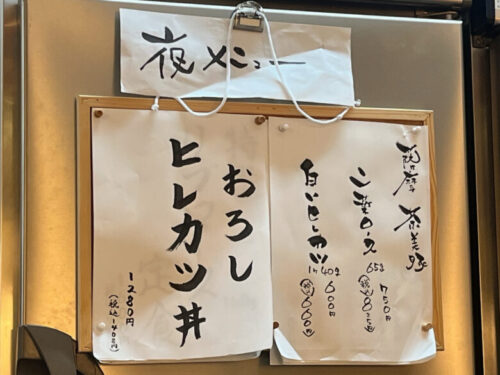 夜メニュー
薩摩 茶美豚
65g
750円
税込825円
白いヒレカツ
1ヶ40g
600円
税込660円
おろし
ヒレカツ丼
1280円
(税込1408円)